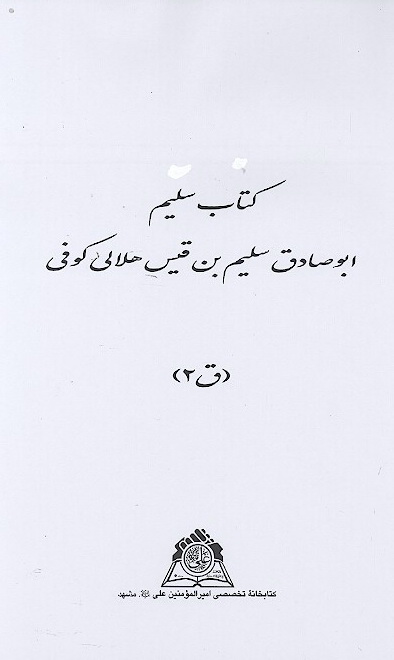 کتاب سلیم
ابوصادق سلیم بن قیس هلالی کوفی
(ق ۲)
کتابخانهٔ تخصصی امیرالمؤمنین علی ﷺ، مشهد